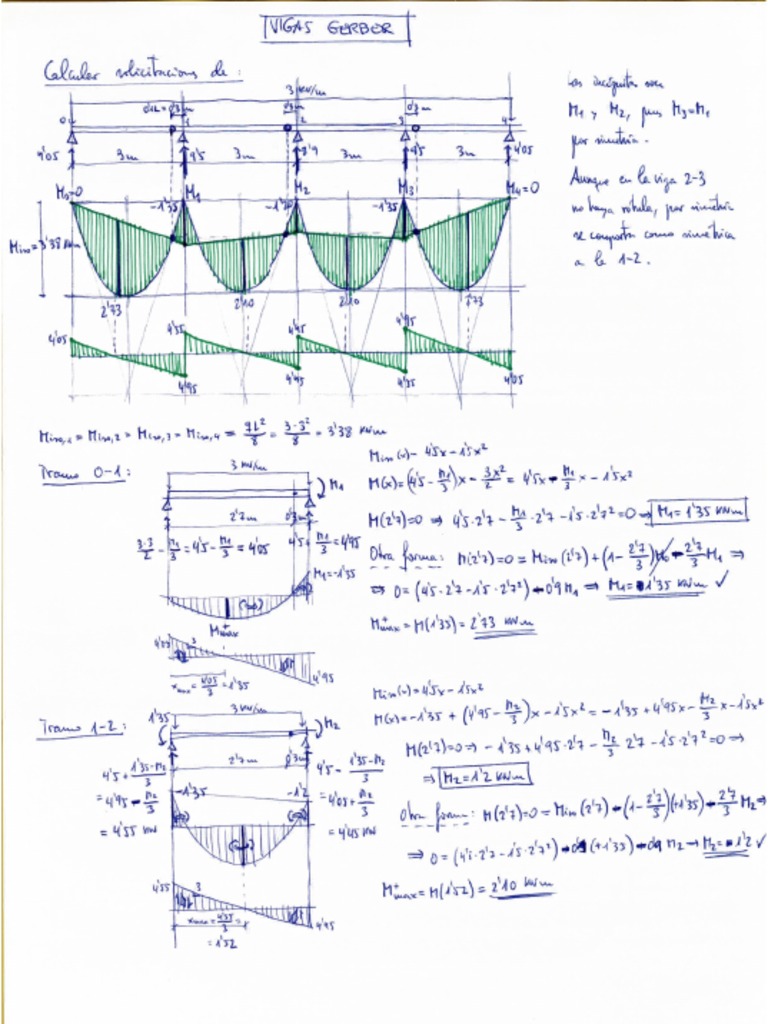 VIGAS GERBER
Calcular solicitaciones de:
3 kN/m
0'3m
0'3m
0'3m
0
1
2
3
4
4'05
3m
4'5
3m
8'9
3m
4'5
3m
4'05
M₀=0
M₁
M₂
M₃
M₄=0
-1'35
-1'20
-1'35
Miso=3'38 kNm
2'73
2'10
2'10
2'73
4'05
4'55
4'45
4'95
4'95
4'45
4'35
4'05
Las incógnitas son
M₁ y M₂, pues M₃=M₁
por simetría.
Aunque en la viga 2-3
no haya rótula, por simetría
se comporta como simétrica
a la 1-2.
Miso,1 = Miso,2 = Miso,3 = Miso,4 = ql²/8 = 3·3²/8 = 3'38 kNm
Tramo 0-1:
3 kN/m
M₁
2'7m
0'3m
3·3/2 - M₁/3 = 4'5 - M₁/3 = 4'05
4'5 + M₁/3 = 4'95
M₁=-1'35
M⁺max
4'05
3
4'95
xmax = 4'05/3 = 1'35
Miso(x)= 4'5x - 1'5x²
M(x)= (4'5 - M₁/3)x - 3x²/2 = 4'5x - M₁/3 x - 1'5x²
M(2'7)=0 ⇒ 4'5·2'7 - M₁/3·2'7 - 1'5·2'7²=0 ⇒ M₁=1'35 kNm
Otra forma: M(2'7)=0= Miso(2'7)+(1-2'7/3)M₀ - 2'7/3 M₁ ⇒
⇒ 0=(4'5·2'7-1'5·2'7²) - 0'9 M₁ ⇒ M₁=1'35 kNm ✓
M⁺max = M(1'35) = 2'73 kNm
Tramo 1-2:
1'35
3 kN/m
M₂
2'7m
0'3m
4'5 + 1'35-M₂/3
= 4'95 - M₂/3
= 4'55 kN
4'5 - 1'35-M₂/3
= 4'05 + M₂/3
= 4'45 kN
-1'35
-1'2
4'55
3
4'95
xmax = 4'55/3 =
= 1'52
Miso(x)=4'5x-1'5x²
M(x)=-1'35 + (4'95 - M₂/3)x - 1'5x² = -1'35 + 4'95x - M₂/3 x - 1'5x²
M(2'7)=0 ⇒ -1'35+4'95·2'7 - M₂/3 2'7 - 1'5·2'7²=0 ⇒
⇒ M₂=1'2 kNm
Otra forma: M(2'7)=0= Miso(2'7) - (1-2'7/3)(+1'35) - 2'7/3 M₂ ⇒
⇒ 0=(4'5·2'7-1'5·2'7²) - 0'1(+1'35) - 0'9 M₂ → M₂=1'2 ✓
M⁺max = M(1'52) = 2'10 kNm